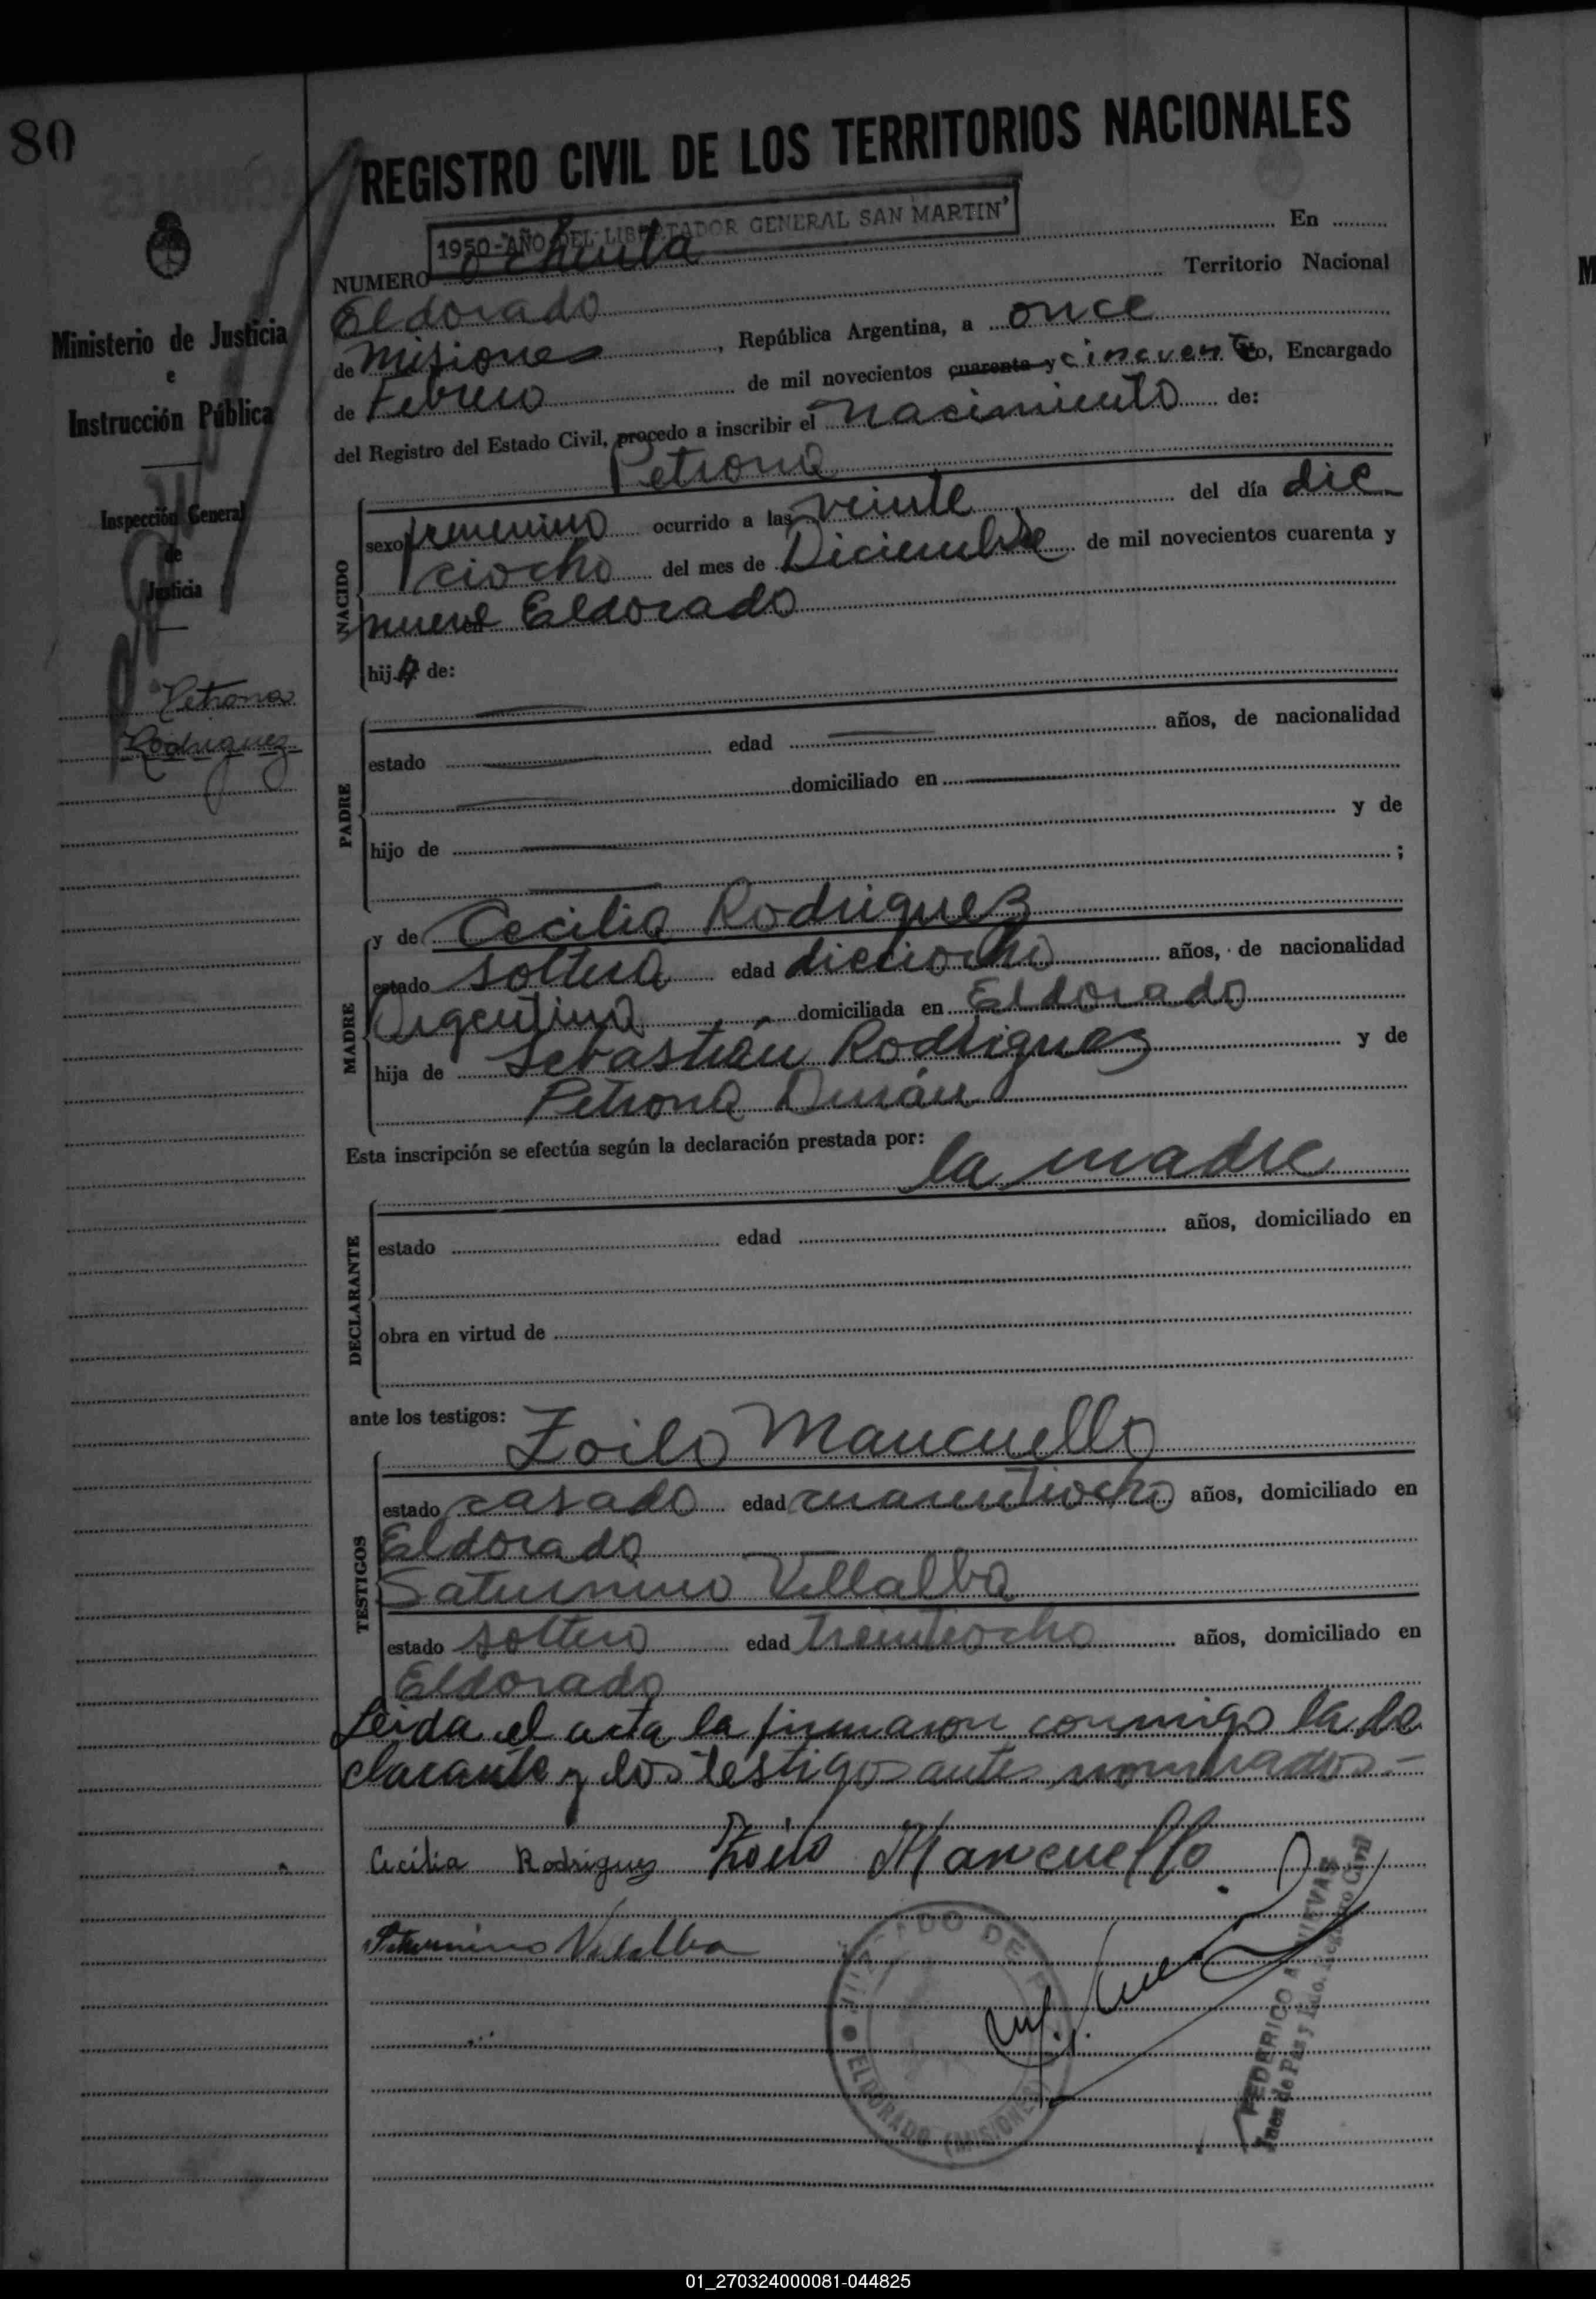 80
REGISTRO CIVIL DE LOS TERRITORIOS NACIONALES
1950-"AÑO DEL LIBERTADOR GENERAL SAN MARTIN"
NUMERO ochenta En
Eldorado Territorio Nacional
de Misiones, República Argentina, a once
de Febrero de mil novecientos cuarenta y cincuenta yo, Encargado
del Registro del Estado Civil, procedo a inscribir el nacimiento de:
Petrona
sexo femenino ocurrido a las veinte del día die
ciocho del mes de Diciembre de mil novecientos cuarenta y
nueve en Eldorado
hija de:
NACIDO
Ministerio de Justicia
e
Instrucción Pública
Inspección General
de
Justicia
Petrona
Rodriguez
PADRE
estado edad años, de nacionalidad
domiciliado en
hijo de y de
;
MADRE
y de Cecilia Rodriguez
estado soltera edad dieciocho años, de nacionalidad
Argentina domiciliada en Eldorado
hija de Sebastián Rodriguez y de
Petrona Durán
Esta inscripción se efectúa según la declaración prestada por:
la madre
DECLARANTE
estado edad años, domiciliado en
obra en virtud de
ante los testigos:
Zoilo Mancuello
TESTIGOS
estado casado edad cuarentiocho años, domiciliado en
Eldorado
Saturnino Villalba
estado soltero edad treintiocho años, domiciliado en
Eldorado
Leida el acta la firmaron conmigo la de
clarante y los testigos antes nombrados.-
Cecilia Rodriguez Zoilo Mancuello
Saturnino Villalba
JUZGADO DE
ELDORADO (MISIONES)
FEDERICO
Juez de Paz y Edo. Registro Civil
01_270324000081-044825